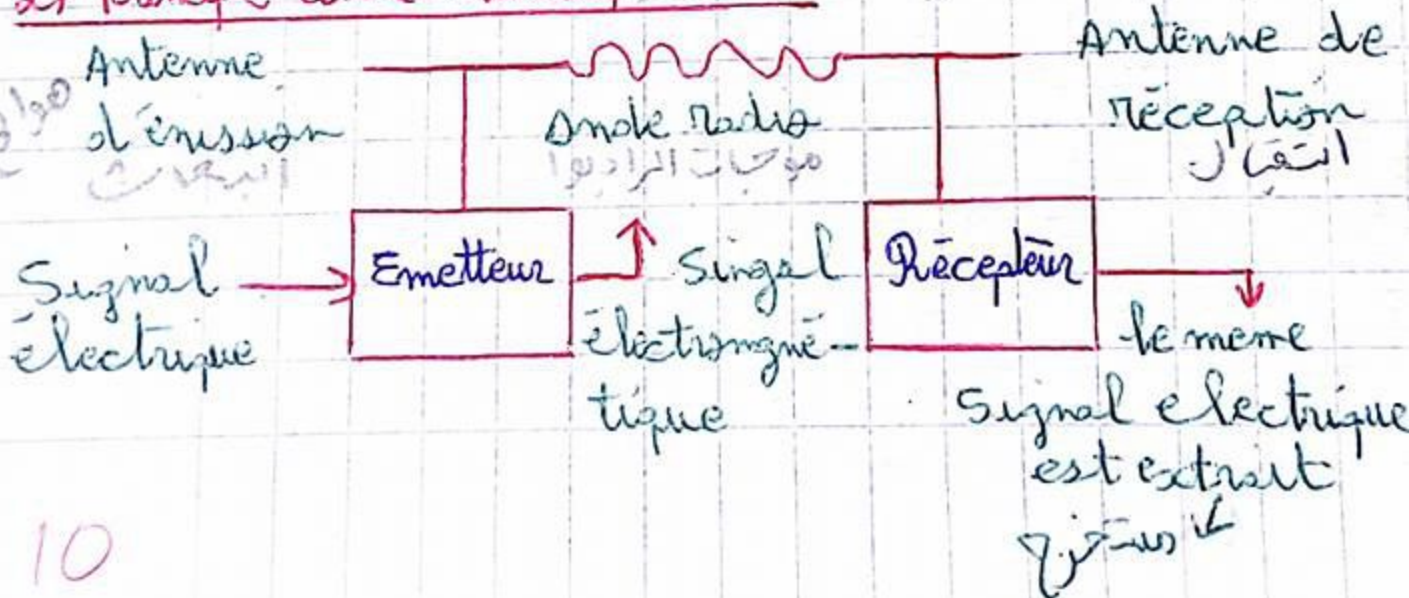 Antenne
d'émission
Onde radio
موجات الراديوا
Antenne de
réception
Signal
électrique
Emetteur
Singal
électromgné-
tique
Récepteur
le meme
Signal electrique
est extrait
10